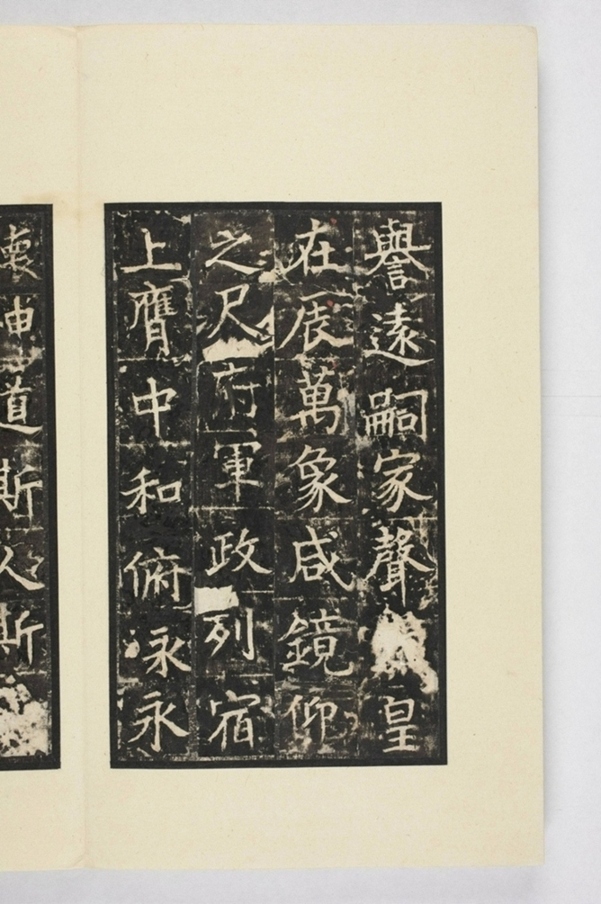 譽遠嗣家聲皇
在辰萬象咸鏡仰
之尺府軍政列宿
上膺中和俯永永
懷神道斯人斯